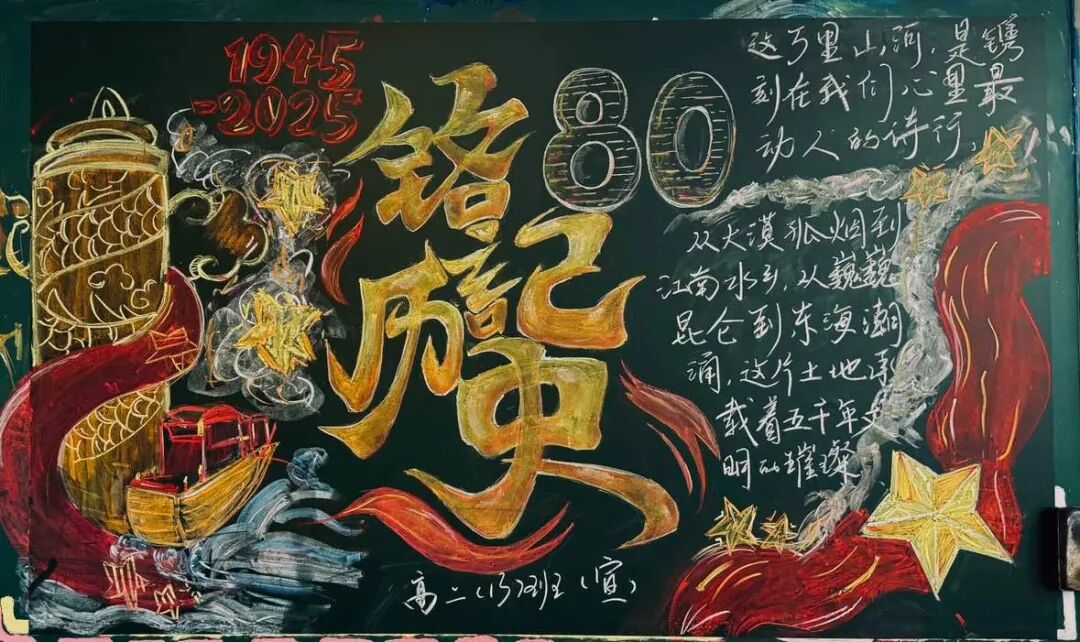 1945
-2025
铭记
历史
80
这万里山河,是镌
刻在我们心里最
动人的诗行,
从大漠孤烟到
江南水乡,从巍巍
昆仑到东海潮
涌,这片土地承
载着五千年文
明的璀璨
高二(15)班(宣)